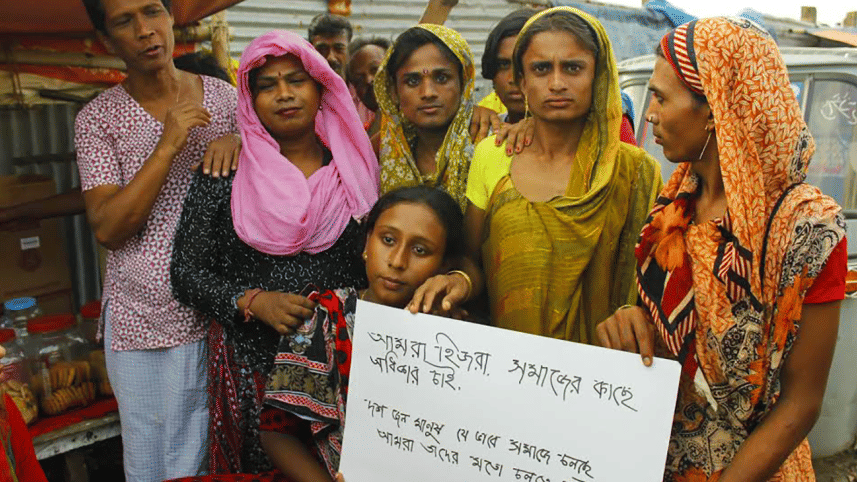 আমরা হিজরা, সমাজের কাছে
অধিকার চাই.
"দশ জন মানুষ যে ভাবে সমাজে চলছে
আমরা তাদের মতো চলতে